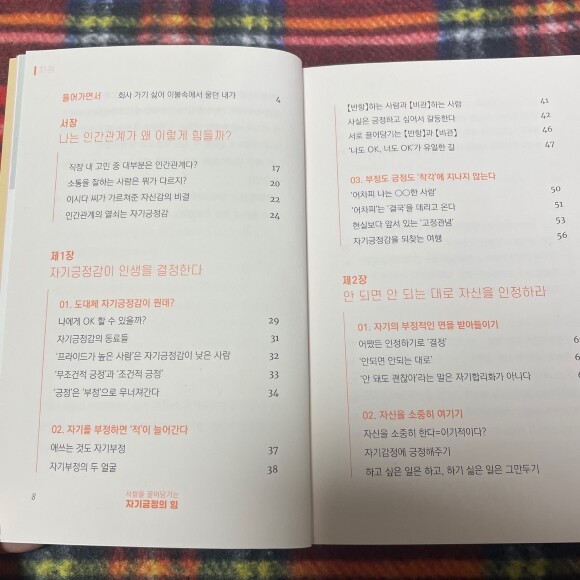 차례
들어가면서 회사 가기 싫어 이불속에서 울던 내가 4
서장
나는 인간관계가 왜 이렇게 힘들까?
직장 내 고민 중 대부분은 인간관계다? 17
소통을 잘하는 사람은 뭐가 다르지? 20
이시다 씨가 가르쳐준 자신감의 비결 22
인간관계의 열쇠는 자기긍정감 24
제1장
자기긍정감이 인생을 결정한다
01. 도대체 자기긍정감이 뭔데?
나에게 OK 할 수 있을까? 29
자기긍정감의 동료들 31
'프라이드가 높은 사람'은 자기긍정감이 낮은 사람 32
'무조건적 긍정'과 '조건적 긍정' 33
'긍정'은 '부정'으로 무너져간다 34
02. 자기를 부정하면 '적'이 늘어간다
애쓰는 것도 자기부정 37
자기부정의 두 얼굴 38
8
사람을 끌어당기는
자기긍정의 힘
【반항】하는 사람과 【비관】하는 사람 41
사실은 긍정하고 싶어서 갈등한다 42
서로 끌어당기는 【반항】과 【비관】 46
'나도 OK, 너도 OK'가 유일한 길 47
03. 부정도 긍정도 '착각'에 지나지 않는다
'어차피 나는 ○○한 사람' 50
'어차피'는 '결국'을 데리고 온다 51
현실보다 앞서 있는 '고정관념' 53
자기긍정감을 되찾는 여행 56
제2장
안 되면 안 되는 대로 자신을 인정하라
01. 자기의 부정적인 면을 받아들이기
어쨌든 인정하기로 '결정'
'안되면 안되는 대로'
'안 돼도 괜찮아'라는 말은 자기합리화가 아니다
02. 자신을 소중히 여기기
자신을 소중히 한다=이기적이다?
자기감정에 긍정해주기
하고 싶은 일은 하고, 하기 싫은 일은 그만두기